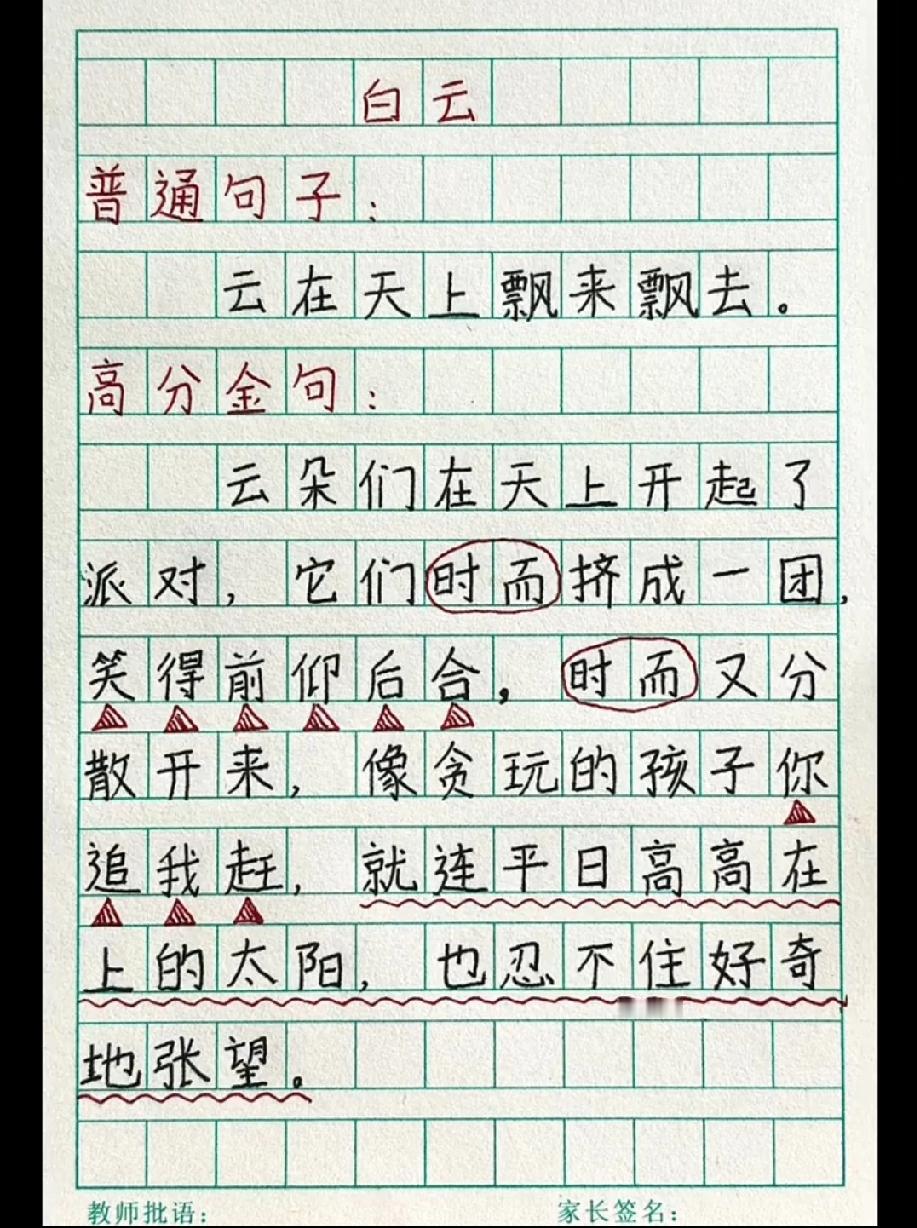 白云
普通句子：
云在天上飘来飘去。
高分金句：
云朵们在天上开起了
派对，它们时而挤成一团，
笑得前仰后合，时而又分
散开来，像贪玩的孩子你
追我赶，就连平日高高在
上的太阳，也忍不住好奇
地张望。
教师批语： 家长签名：